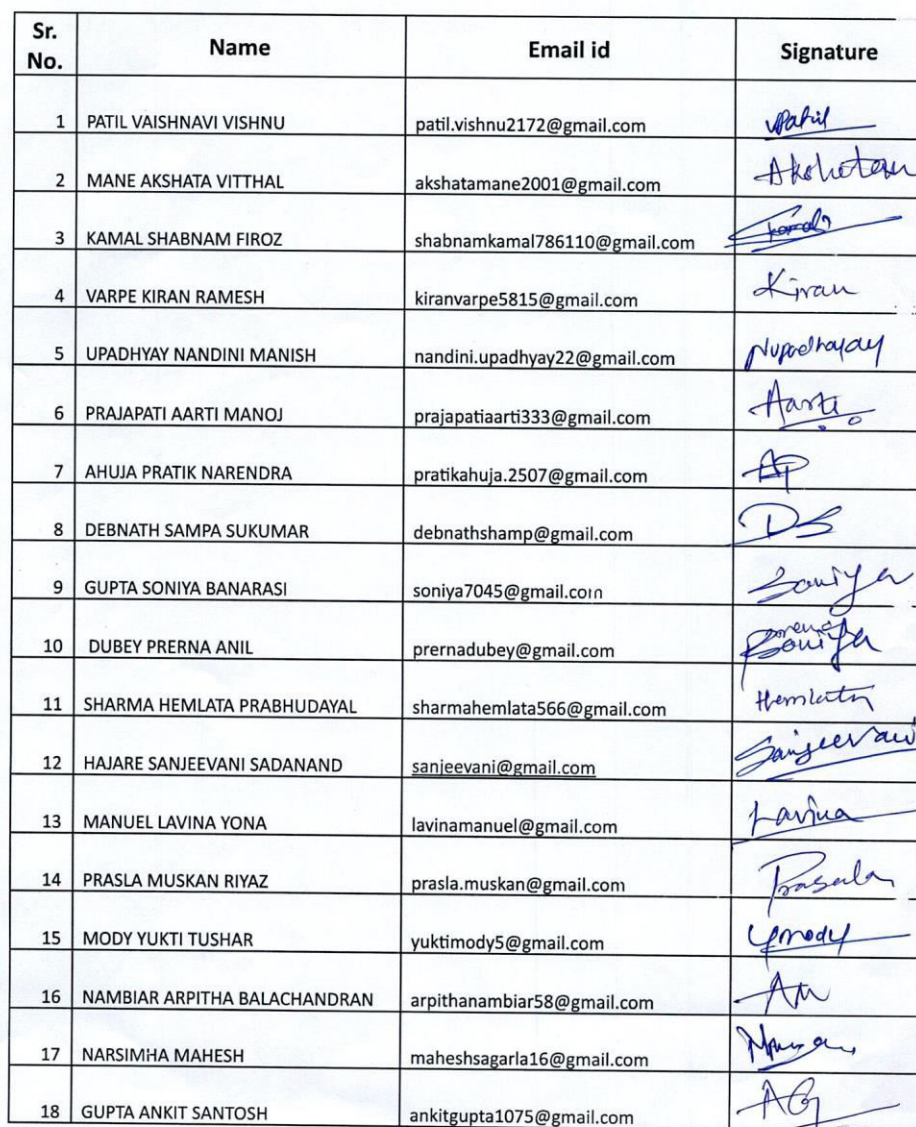 Sr. No. Name Email id Signature
1 PATIL VAISHNAVI VISHNU patil.vishnu2172@gmail.com vpatil
2 MANE AKSHATA VITTHAL akshatamane2001@gmail.com
3 KAMAL SHABNAM FIROZ shabnamkamal786110@gmail.com Kamal
4 VARPE KIRAN RAMESH kiranvarpe5815@gmail.com Kiran
5 UPADHYAY NANDINI MANISH nandini.upadhyay22@gmail.com Nupadhayay
6 PRAJAPATI AARTI MANOJ prajapatiaarti333@gmail.com Aarti
7 AHUJA PRATIK NARENDRA pratikahuja.2507@gmail.com AP
8 DEBNATH SAMPA SUKUMAR debnathshamp@gmail.com DS
9 GUPTA SONIYA BANARASI soniya7045@gmail.com Soniya
10 DUBEY PRERNA ANIL prernadubey@gmail.com
11 SHARMA HEMLATA PRABHUDAYAL sharmahemlata566@gmail.com Hemlata
12 HAJARE SANJEEVANI SADANAND sanjeevani@gmail.com Sanjeevani
13 MANUEL LAVINA YONA lavinamanuel@gmail.com Lavina
14 PRASLA MUSKAN RIYAZ prasla.muskan@gmail.com
15 MODY YUKTI TUSHAR yuktimody5@gmail.com Ymody
16 NAMBIAR ARPITHA BALACHANDRAN arpithanambiar58@gmail.com
17 NARSIMHA MAHESH maheshsagarla16@gmail.com
18 GUPTA ANKIT SANTOSH ankitgupta1075@gmail.com AG